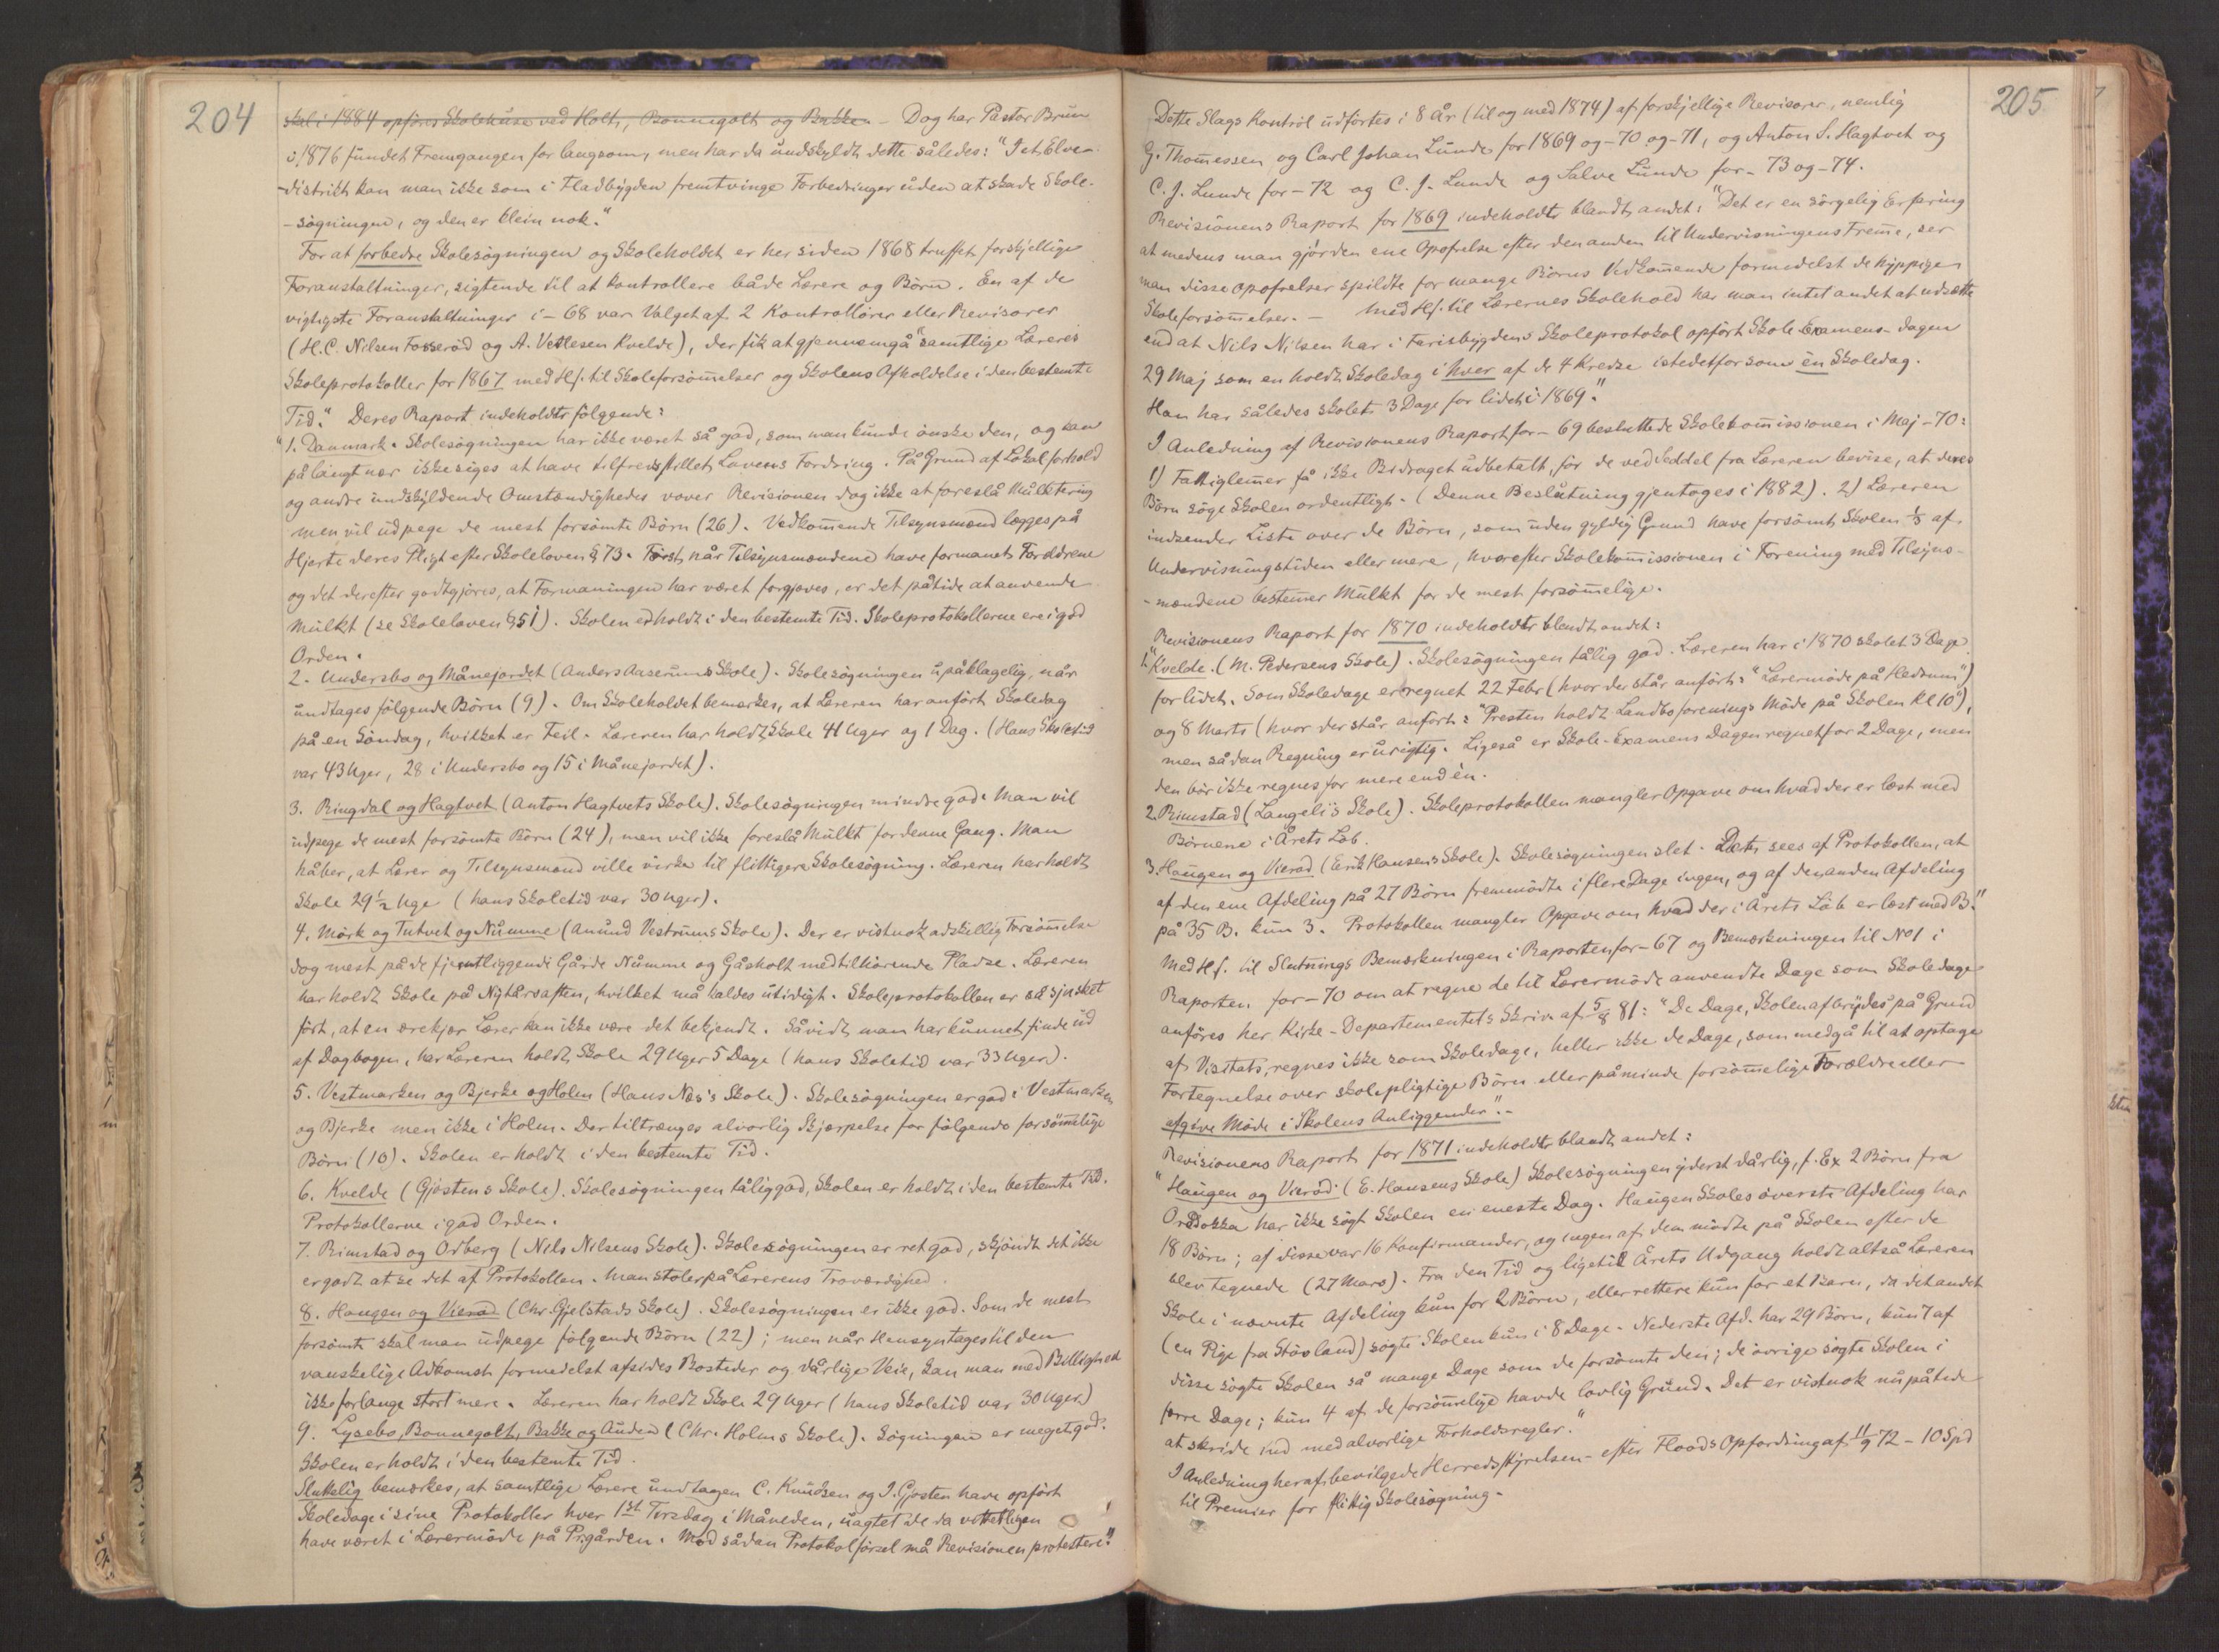 204
skal i 1884 opføres Skolehuse ved Holt, Bonnegolt og Bakke. - Dog har Pastor Brun
i 1876 fundet Fremgangen for langsom, men har da undskyldt dette således: "I et Elve-
-distrikt kan man ikke som i Fladbygden fremtvinge Forbedringer uden at skade Skole-
-søgningen, og den er klein nok."
For at forbedre Skolesøgningen og Skoleholdet er her siden 1868 truffet forskjellige
Foranstaltninger, sigtende til at kontrollere både Lærere og Børn. En af de
vigtigste Foranstaltninger i -68 var Valget af 2 Kontrollører eller Revisorer
(H.C. Nilsen Fosserød og A. Vetlesen Kvelde), der fik at gjennemgå "samtlige Læreres
Skoleprotokoller for 1867 med Hs. til Skoleforsømmelser og Skolens Afholdelse i den bestemte
Tid." Deres Raport indeholdt følgende:
"1. Danmark. Skolesøgningen har ikke været så god, som man kunde ønske den, og kan
på langt nær ikke siges at have tilfredsstillet Lovens Fordring. På Grund af Lokalforhold
og andre undskyldende Omstændigheder vover Revisionen dog ikke at foreslå Mulktering
men vil udpege de mest forsømte Børn (26). Vedkommende Tilsynsmænd lægges på
Hjerte deres Pligt efter Skoleloven § 73. Først når Tilsynsmændene have formanet Forældrene
og det derefter godtgjøres, at Formaningen har været forgjæves, er det på tide at anvende
Mulkt (se Skoleloven § 51). Skolen er holdt i den bestemte Tid. Skoleprotokollerne ere i god
Orden.
2. Undersbo og Månejordet (Anders Aaserums Skole). Skolesøgningen upåklagelig, når
undtages følgende Børn (9). Om Skoleholdet bemærkes, at Læreren har anført Skoledag
på en Søndag, hvilket er Feil. Læreren har holdt Skole 41 Uger og 1 Dag. (Hans Skoletid
var 43 Uger, 28 i Undersbo og 15 i Månejordet).
3. Ringdal og Hagtvet (Anton Hagtvets Skole). Skolesøgningen mindre god. Man vil
udpege de mest forsømte Børn (24), men vil ikke foreslå Mulkt for denne Gang. Man
håber, at Lærer og Tilsynsmænd ville virke til flittigere Skolesøgning. Læreren har holdt
Skole 29½ Uge (hans Skoletid var 30 Uger).
4. Mørk og Tutvet og Numme (Anund Vestrums Skole). Der er vistnok adskillig Forsømmelse
dog mest på de fjerntliggende Gårde Numme og Gåsholt med tilhørende Pladse. Læreren
har holdt Skole på Nytårsaften, hvilket må kaldes utidigt. Skoleprotokollen er så sjusket
ført, at en ærekjær Lærer kan ikke være det bekjendt. Såvidt man har kunnet finde ud
af Dagbogen, har Læreren holdt Skole 29 Uger 5 Dage (hans Skoletid var 33 Uger).
5. Vestmarken og Bjerke og Holen (Hans Næs's Skole). Skolesøgningen er god i Vestmarken
og Bjerke men ikke i Holm. Der tiltrænges alvorlig Skjærpelse for følgende forsømmelige
Børn (10). Skolen er holdt i den bestemte Tid.
6. Kvelde (Gjøstens Skole). Skolesøgningen tålig god, Skolen er holdt i den bestemte Tid.
Protokollerne i god Orden.
7. Rimstad og Odberg (Nils Nilsens Skole). Skolesøgningen er ret god, skjøndt det ikke
er godt at se det af Protokollen. Man stoler på Lærerens Troværdighed.
8. Haugen og Vierød (Chr. Gjelstads Skole). Skolesøgningen er ikke god. Som de mest
forsømte skal man udpege følgende Børn (22); men når Hensyn tages til den
vanskelige Adkomst formedelst afsides Bosteder og dårlige Veie, kan man med Billighed
ikke forlange stort mere. Læreren har holdt Skole 29 Uger (hans Skoletid var 30 Uger)
9. Lysebo, Bonnegolt, Bakke og Auden (Chr. Holms Skole). Søgningen er meget god.
Skolen er holdt i den bestemte Tid.
Sluttelig bemærkes, at samtlige Lærere undtagen C. Knudsen og I. Gjøsten have opført
Skoledage i sine Protokoller hver 1ste Torsdag i Måneden, uagtet de da vitterligen
have været i Lærermøde på Pr.gården. Mod sådan Protokolførsel må Revisionen protestere."
205
Dette Slags Kontrol udførtes i 8 År (til og med 1874) af forskjellige Revisorer, nemlig
G. Thommessen og Carl Johan Lunde for 1869 og -70 og -71, og Anton S. Hagtvet og
C. J. Lunde for -72 og C. J. Lunde og Salve Lunde for -73 og -74.
Revisionens Raport for 1869 indeholdt blandt andet: "Det er en sørgelig Erfaring
at medens man gjør den ene Opofrelse efter den anden til Undervisningens Fremme, ser
man disse Opofrelser spildte for mange Børns Vedkommende formedelst de hyppige
Skoleforsømmelser. - Med Hs. til Lærernes Skolehold har man intet andet at udsætte
end at Nils Nilsen har i Farisbygdens Skoleprotokol opført Skole Examens-dagen
29 Maj som en holdt Skoledag i hver af de 4 Kredse istedetfor som èn Skoledag.
Han har således skolet 3 Dage for lidet i 1869."
I Anledning af Revisionens Raport for -69 besluttede Skolekommissionen i Maj -70:
1) Fattiglemmer få ikke Bidraget udbetalt, før de ved Seddel fra Læreren bevise, at deres
Børn søge Skolen ordentligt. (Denne Beslutning gjentoges i 1882). 2) Læreren
indsender Liste over de Børn, som uden gyldig Grund have forsømt Skolen ⅓ af
Undervisningstiden eller mere, hvorefter Skolekommissionen i Forening med Tilsyns-
-mændene bestemmer Mulkt for de mest forsømmelige.
Revisionens Raport for 1870 indeholdt blandt andet:
1. "Kvelde. (M. Pedersens Skole). Skolesøgningen tålig god. Læreren har i 1870 skolet 3 Dage
for lidet. Som Skoledage er regnet 22 Febr (hvor der står anført: "Lærermøde på Hedrum")
og 8 Marts (hvor der står anført: "Presten holdt Landboforenings Møde på Skolen Kl 10"),
men sådan Regning er urigtig. Ligeså er Skole-Examens Dagen regnet for 2 Dage, men
den bør ikke regnes for mere end èn.
2. Rimstad (Langeli's Skole). Skoleprotokollen mangler Opgave om hvad der er læst med
Børnene i Årets Løb.
3. Haugen og Vierød (Erik Hansens Skole). Skolesøgningen slet. Det sees af Protokollen, at
af den ene Afdeling på 27 Børn fremmødte i flere Dage ingen, og af den anden Afdeling
på 35 B. kun 3. Protokollen mangler Opgave om hvad der i Årets Løb er læst med B."
Med Hs. til Slutnings Bemærkningen i Raporten for -67 og Bemærkningen til No 1 i
Raporten for -70 om at regne de til Lærermøde anvendte Dage som Skoledage
anføres her Kirke-Departementets Skriv. af 5/8 81: "De Dage, Skolen afbrydes på Grund
af Visitats, regnes ikke som Skoledage, heller ikke de Dage, som medgå til at optage
Fortegnelse over skolepligtige Børn eller påminde forsømmelige Forældre eller
afgive Møde i Skolens Anliggender".-
Revisionens Raport for 1871 indeholdt blandt andet:
"Haugen og Vierød. (E. Hansens Skole) Skolesøgningen yderst dårlig, f. Ex 2 Børn fra
har ikke søgt Skolen en eneste Dag. Haugen Skoles øverste Afdeling har
18 Børn; af disse var 16 Konfirmander, og ingen af dem mødte på Skolen efter de
blev tegnede (27 Mars). Fra den Tid og ligetil Årets Udgang holdt altså Læreren
Skole i nævnte Afdeling kun for 2 Børn, eller rettere kun for et Barn, da det andet
(en Pige fra Stavland) søgte Skolen kun i 8 Dage. Nederste Afd. har 29 Børn, kun 7 af
disse søgte Skolen så mange Dage som de forsømte den; de øvrige søgte Skolen i
færre Dage; kun 4 af de forsømmelige havde lovlig Grund. Det er vistnok nu på tide
at skride ind med alvorlige Forholdsregler."
I Anledning heraf bevilgede Herredsstyrelsen - efter Floods Opfordring af 11/9 72 - 10 Spd
til Premier for flittig Skolesøgning.